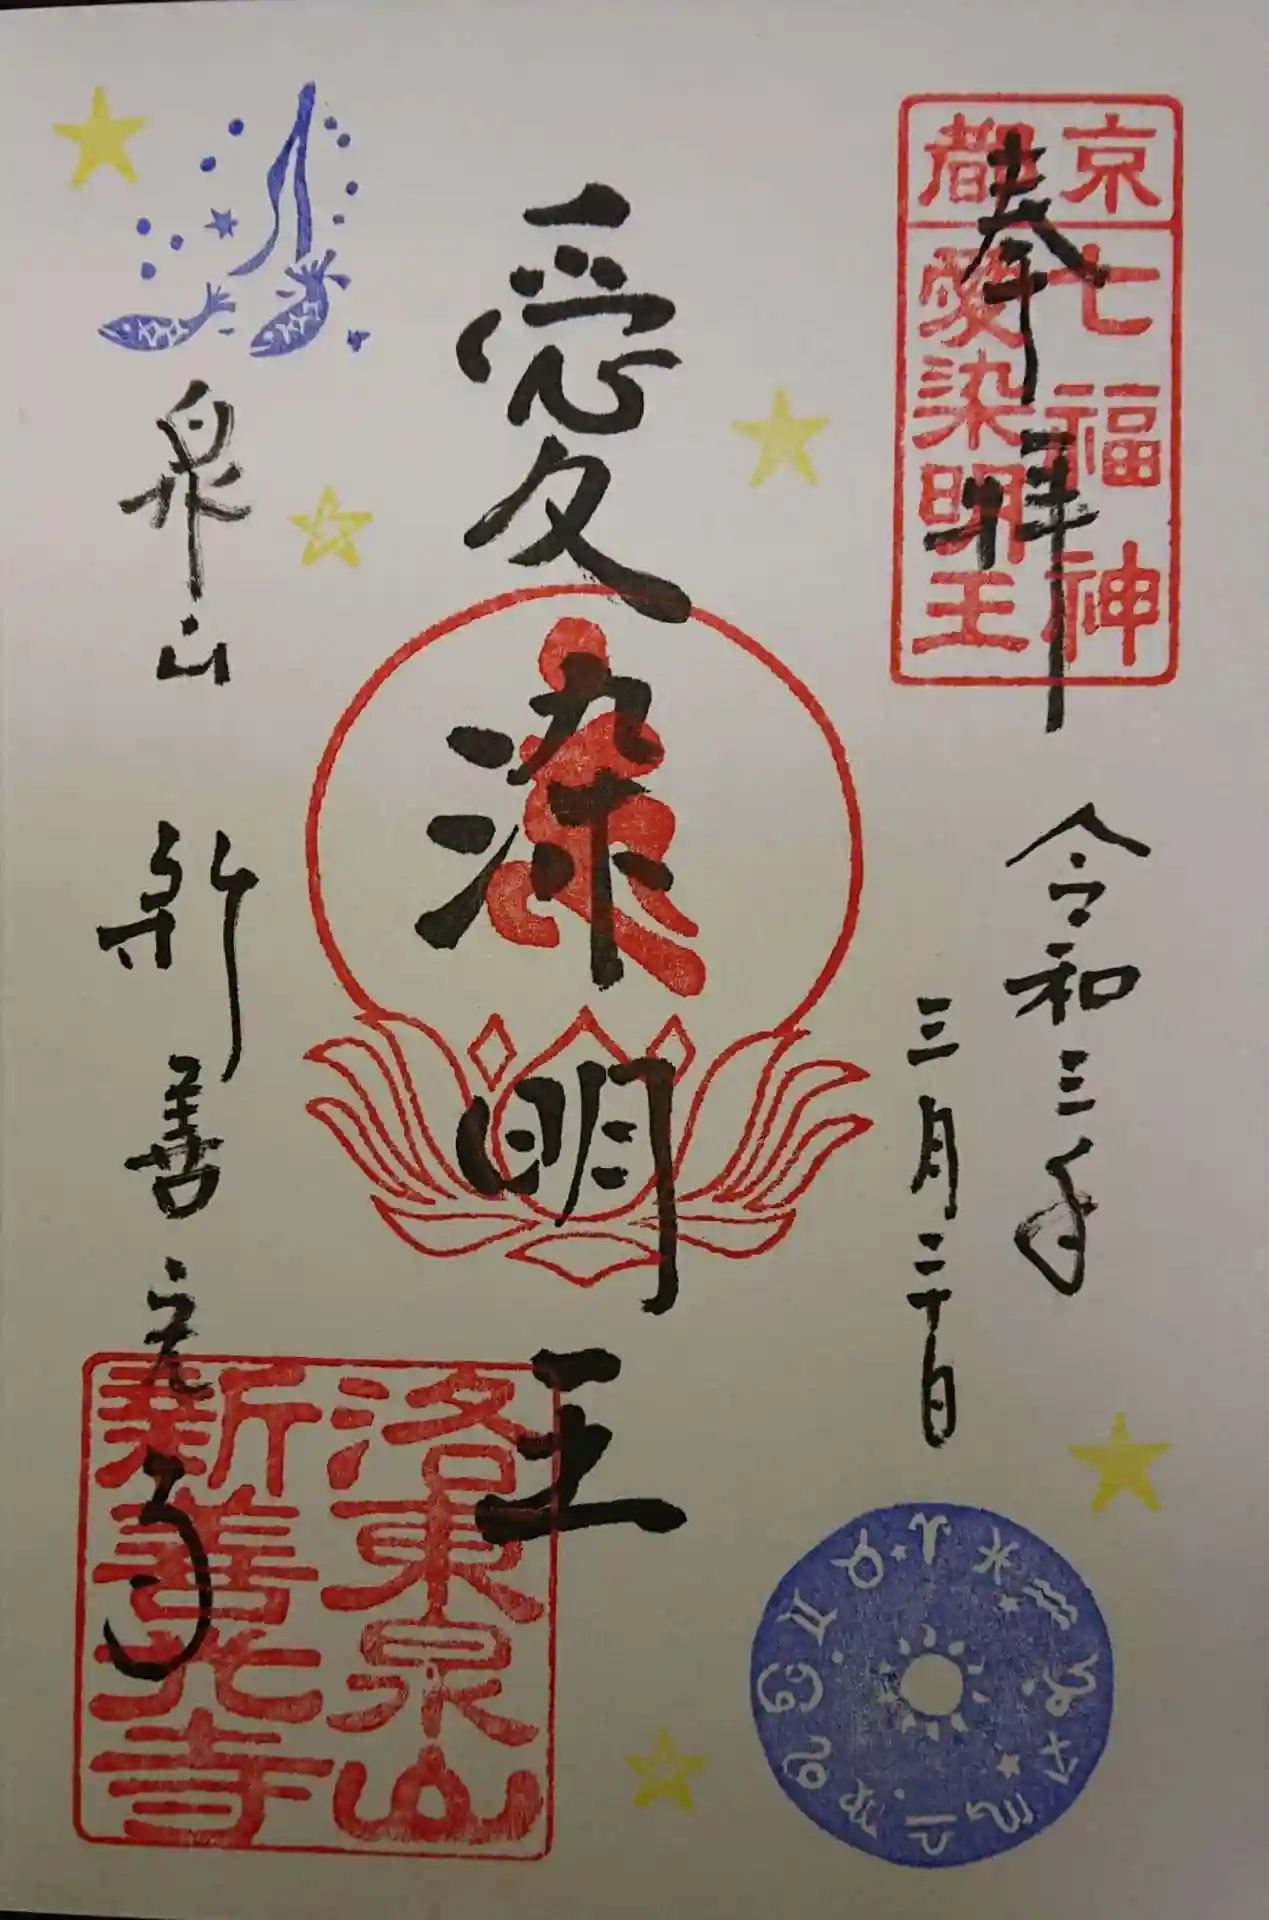 京都
七福神
愛染明王
奉拝
令和三年
三月二十日
愛染明王
泉山 新善光寺
洛東泉山
新善光寺